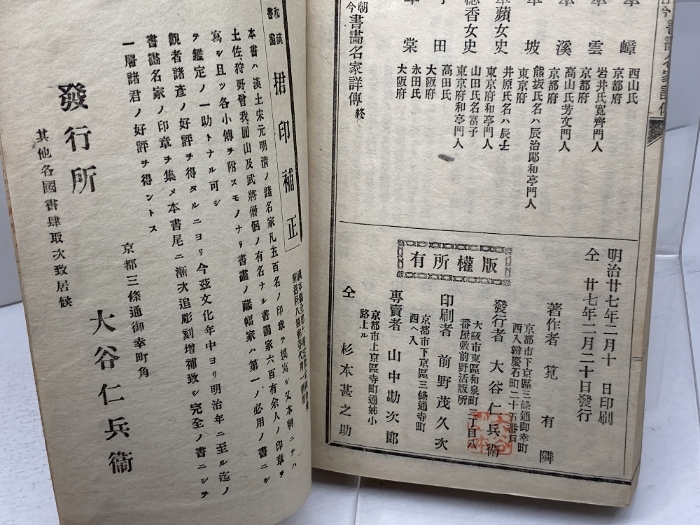 古今書畫名家詳傳
峰
西山氏
京都府
雲
岩井氏寬齊門人
京都府
溪
高山氏芳文門人
京都府
坡
熊坂氏名ハ辰治郎和亭門人
東京府
翠蘋女史
井原氏名ハ辰士
東京府和亭門人
穗香女史
山田氏名富子
東京府和亭門人
田
高田氏
大阪府
棠
永田氏
大阪府
朝今書畫名家詳傳終
明治廿七年二月十日印刷
仝廿七年二月二十日發行
版權所有
著作者 筧有隣
京都市下京區三條通御幸町
西入辨慶石町二十五番戶
發行者 大谷仁兵衞
大阪市東區和泉町二丁目八
番屋敷前野活版所
印刷者 前野茂久次
京都市下京區三條通寺町
西へ入
專賣者 山中勘次郎
京都市上京區寺町通姊小
路上ル
仝 杉本甚之助
和漢書畫捃印補正
本書ハ漢土宋元明淸ノ諸名家凡五百名ノ印章ヲ摸寫シ又本朝ニテハ
土佐狩野曾我圓山及武將僧侶ノ有名ナル書畫家六百有余人ノ印章ヲ
寫シ且ツ各小傳ヲ附スモノナリ書畫ノ藏幅家ハ第一ノ必用ノ書ニシテ
ヲ鑑定ノ一助トナル可シ
觀者諸彥ノ好評ヲ得タルニヨリ今玆文化年中ヨリ明治年ニ至ル迄ノ
書畫名家ノ印章ヲ集メ本書尾ニ漸次追彫刻增補致シ完全ノ書ニシテ
一層諸君ノ好評ヲ得ントス
京都三條通御幸町角
發行所 大谷仁兵衞
其他各國書肆取次致居候